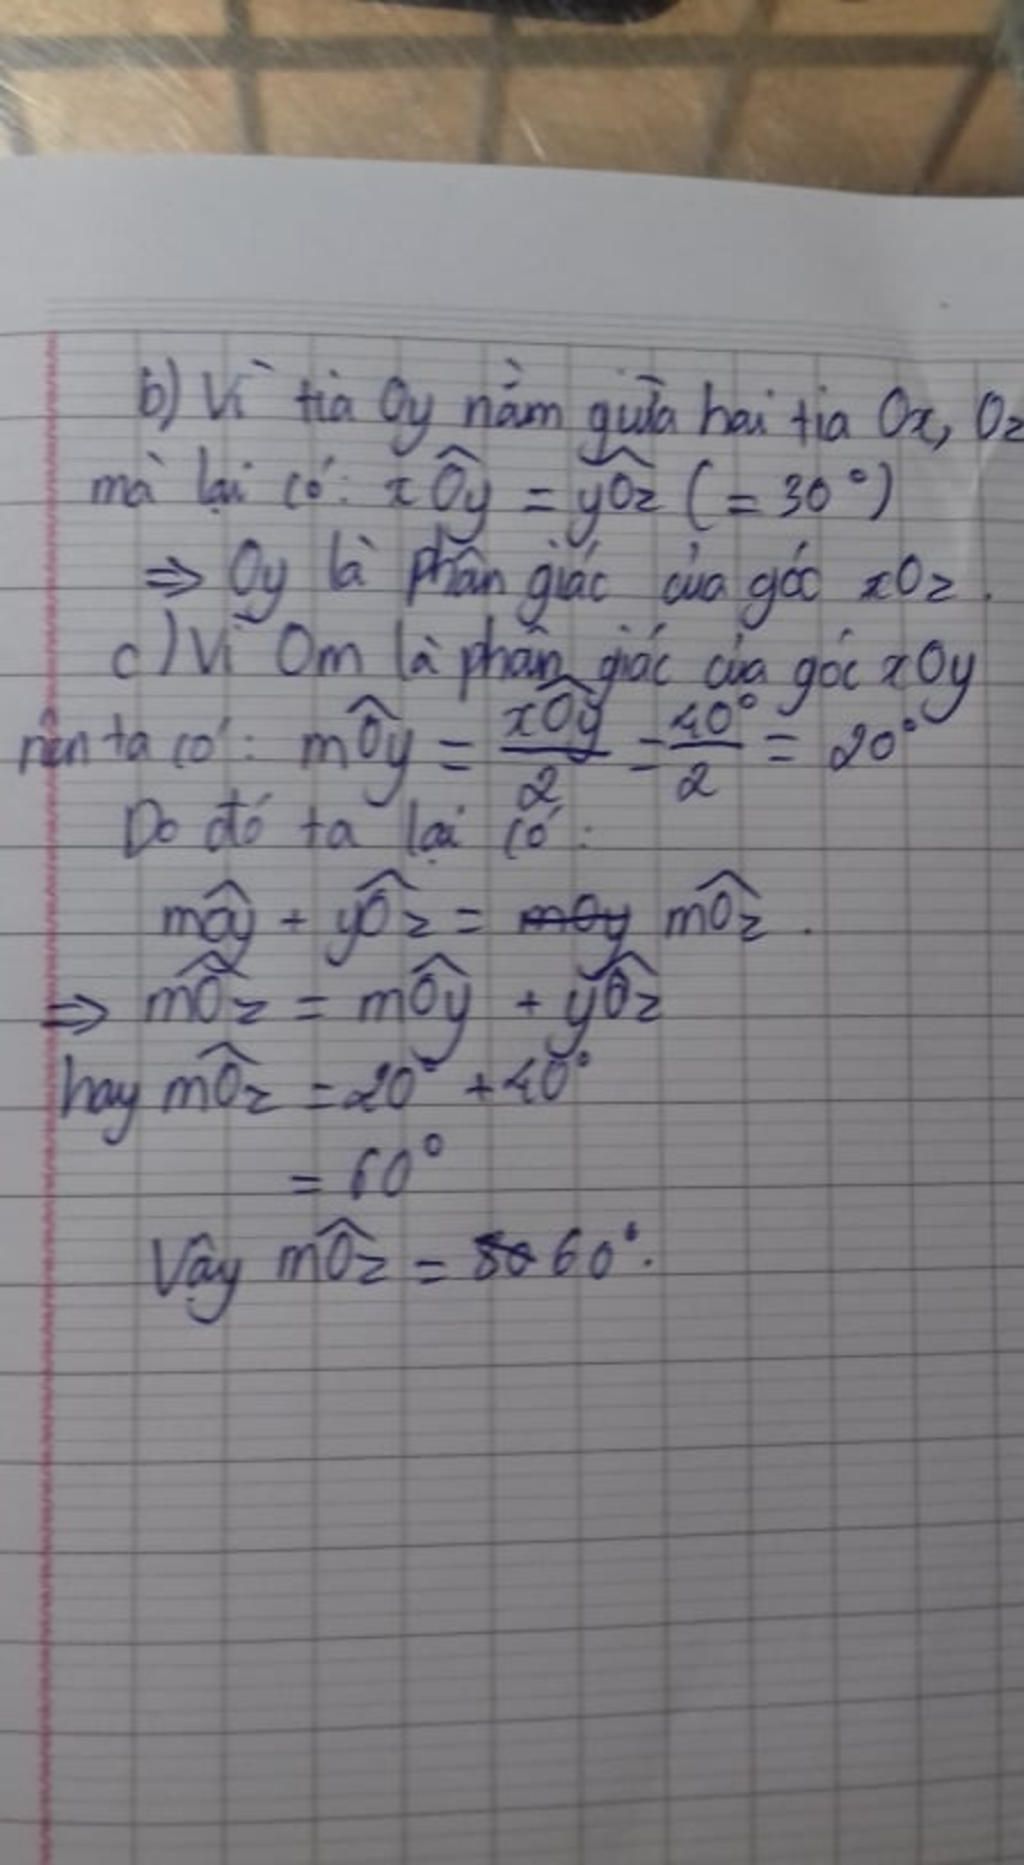 b) Vì tia Oy nằm giữa hai tia Ox, Oz
mà lại có: xÔy = yÔz (= 30°)
⇒ Oy là phân giác của góc xOz.
c) Vì Om là phân giác của góc xOy
nên ta có: mÔy = xÔy/2 = 40°/2 = 20°
Do đó ta lại có:
mÔy + yÔz = mOy mÔz.
⇒ mÔz = mÔy + yÔz
hay mÔz = 20° + 40°
= 60°
Vậy mÔz = 80 60°.